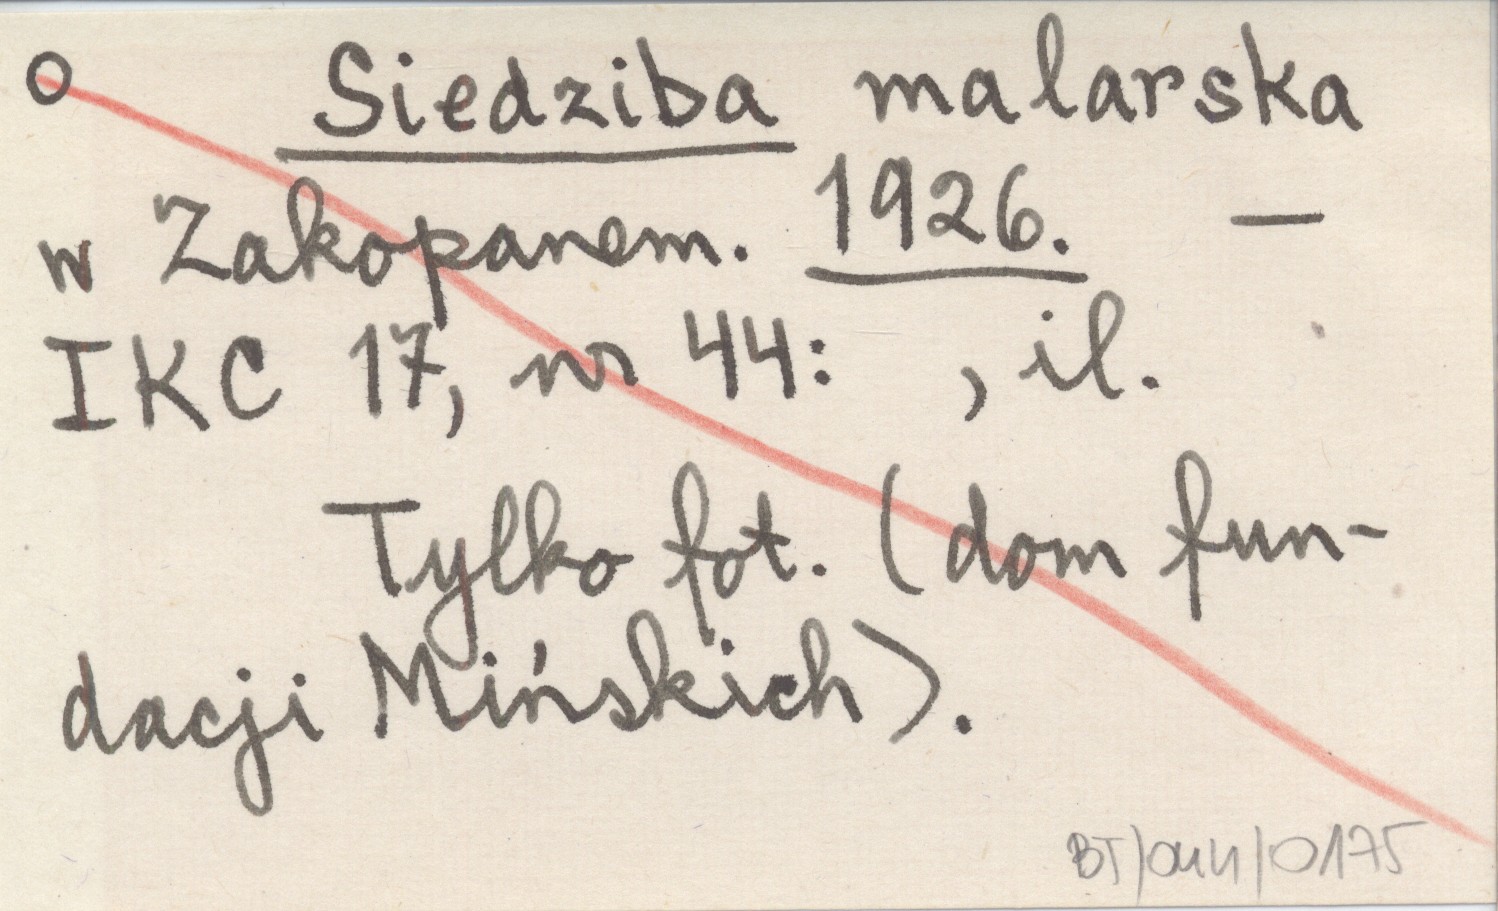 O Siedziba malarska
w Zakopanem. 1926. —
IKC 17, nr 44: , il.
Tylko fot. (dom fun-
dacji Mińskich).
BT/044/0175